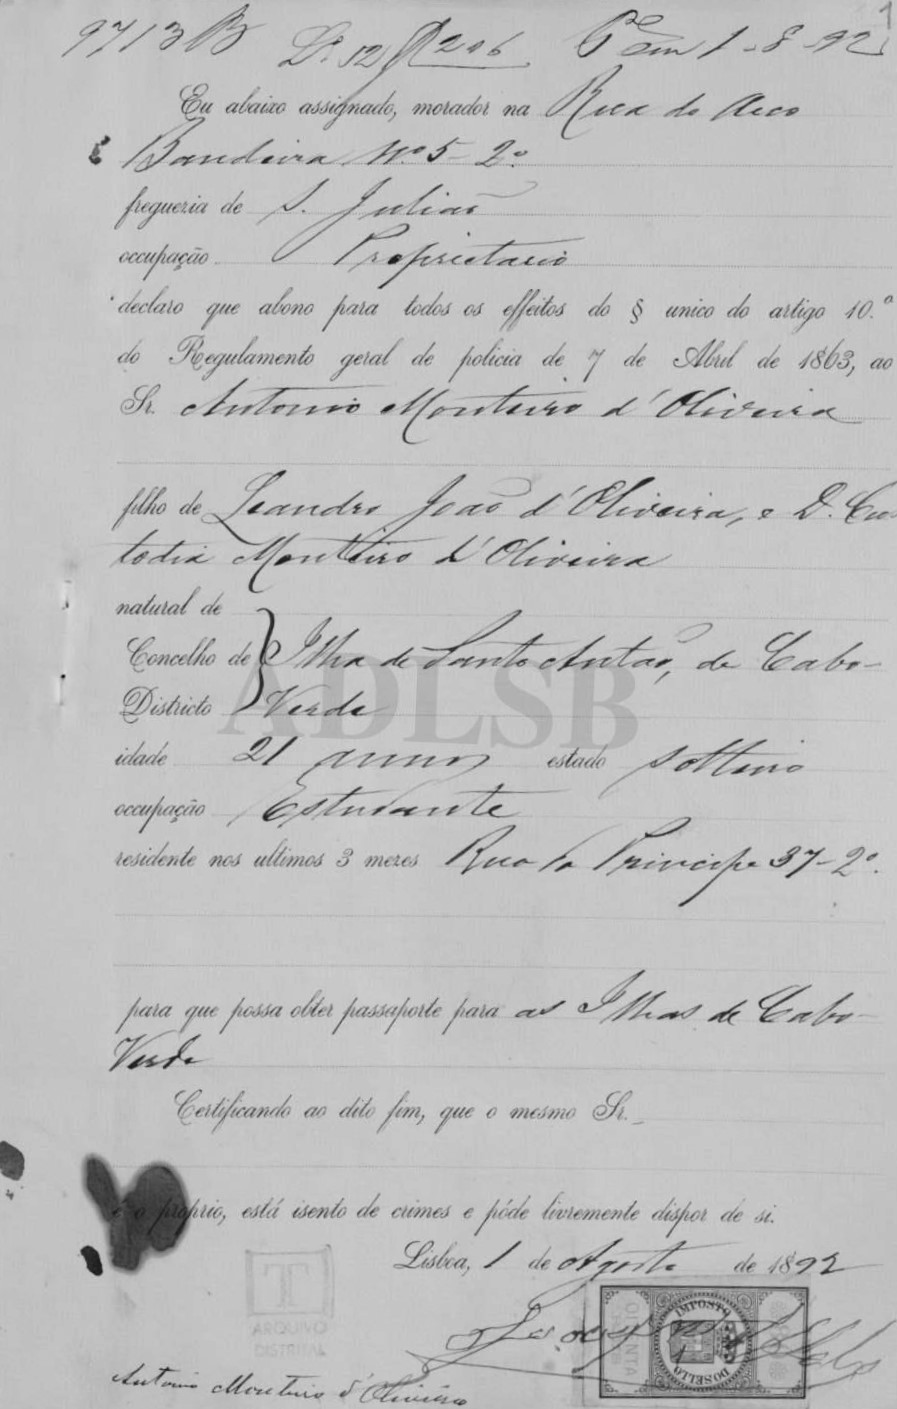 9713 B L.º 12 f 206 P.e em 1-8-92
1
Eu abaixo assignado, morador na Rua do Arco
Bandeira Nº 5-2º
freguezia de S. Julião
occupação Proprietario
declaro que abono para todos os effeitos do § unico do artigo 10.º
do Regulamento geral de policia de 7 de Abril de 1863, ao
Sr. Antonio Monteiro d'Oliveira
filho de Leandro João d'Oliveira, e D. Cus
todia Monteiro d'Oliveira
natural de
Concelho de Ilha de Santo Antão, de Cabo-
Districto Verde
ADLSB
idade 21 annos estado solteiro
occupação Estudante
residente nos ultimos 3 mezes Rua do Principe 37-2º.
para que possa obter passaporte para as Ilhas de Cabo-
Verde
Certificando ao dito fim, que o mesmo Sr.
é o proprio, está isento de crimes e póde livremente dispor de si.
Lisboa, 1 de Agosto de 1892
T
ARQUIVO
DISTRITAL
IMPOSTO
DO SELLO
OITENTA
Antonio Monteiro d'Oliveira